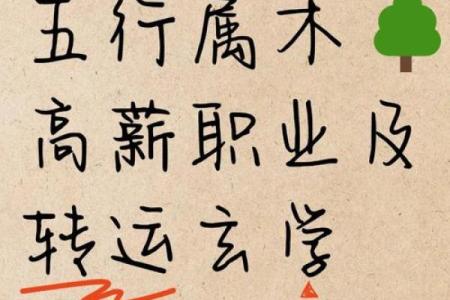 五行属木
高薪职业及
转运玄学